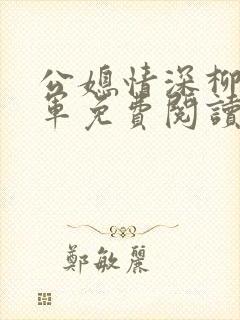 公媳情深柳
军免費閱讀
鄭敏麗